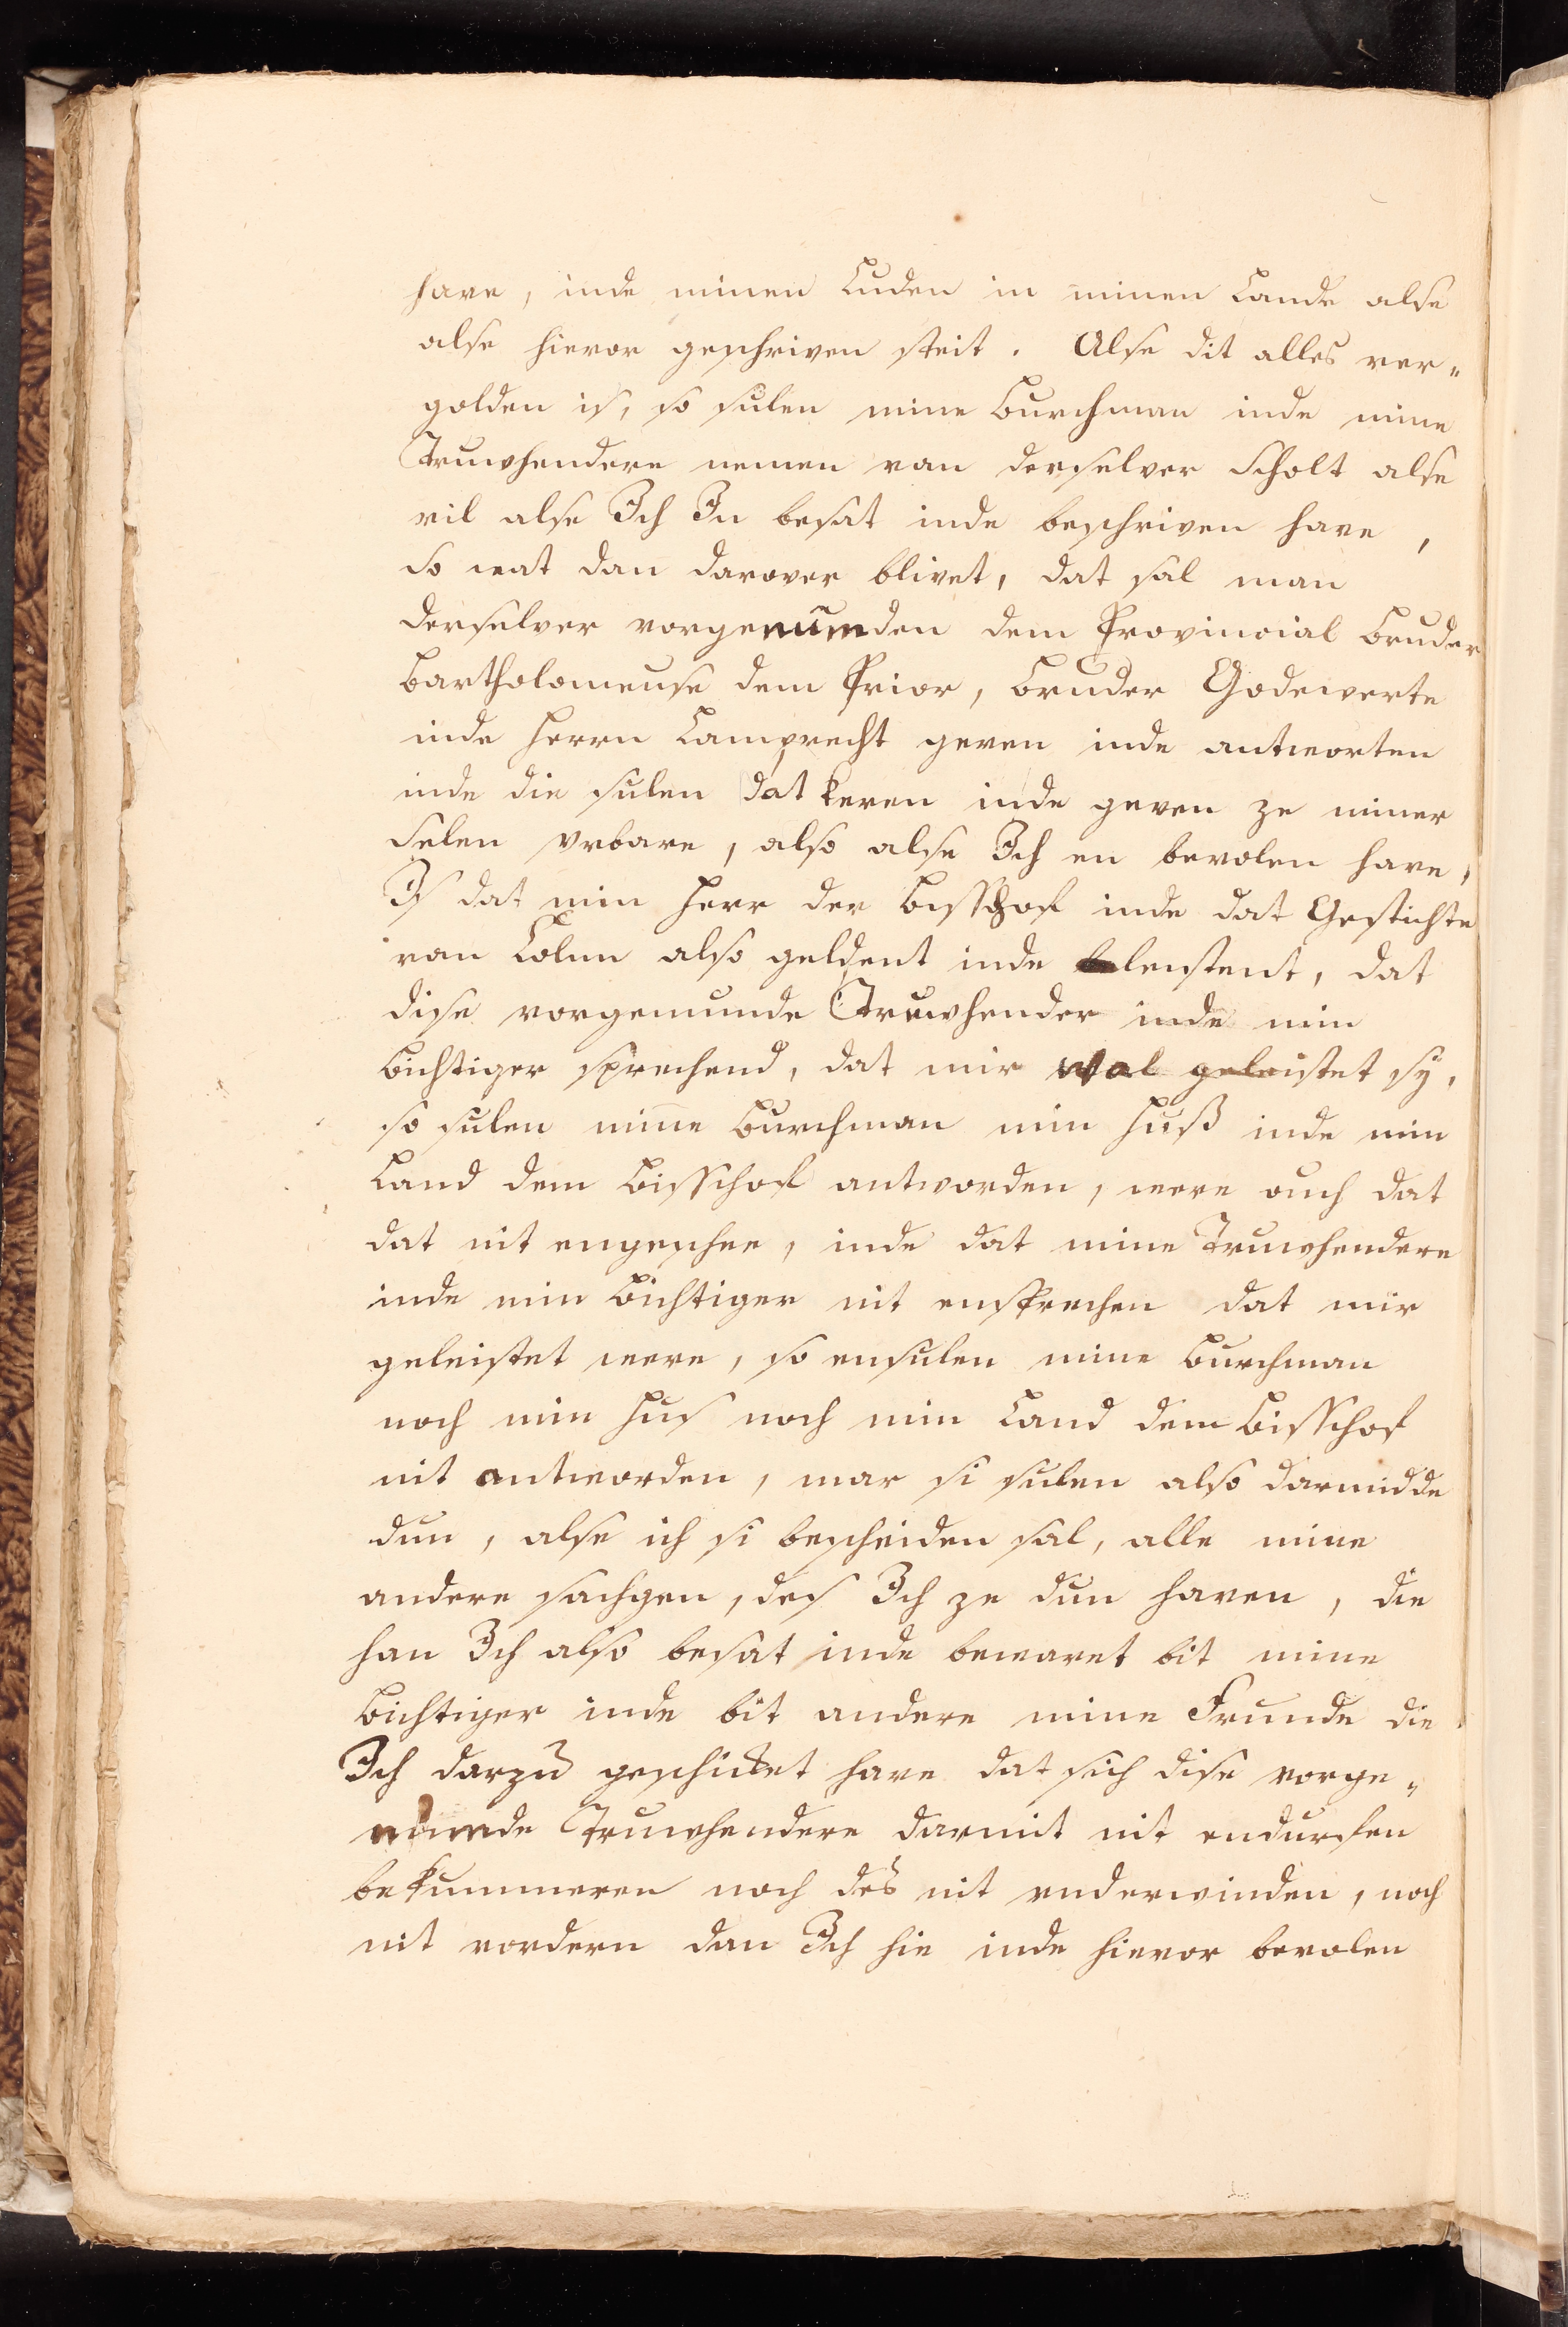 have, inde minen Luden in minen Lande alse
alse hievor geschriven steit. Alse dit alles ver„
golden is, so sulen mine Burchman inde mine
Truwhendere nemen van derselver Scholt alse
vil alse Ich In besat inde beschriven have,
so wat dan darover blivet, dat sal man
derselver vorgenumden dem Provincial Bruder
Bartholomeuse dem Prior, Bruder Godewerte
inde Herrn Lamprecht geven inde antworten
inde die sulen dat keren inde geven ze miner
Selen vrbare, also alse Ich en bevolen have,
Is dat min Herr der Bisschof inde dat Gestichte
van Colne also geldent inde lenstent, dat
dise vorgemunde Truwhender inde min
Bichtiger sprechend, dat mir wal geleistet sy,
so sulen mine Burchman min Huß inde min
Land dem Bisschof antworden, were ouch dat
dat nit engeschee, inde dat mine Truwhendere
inde min Bichtiger nit ensprechen dat mir
geleistet were, so ensulen mine Burchman
noch min Hus noch min Land dem Bisschof
nit antworden, mar si sulen also darmidde
dun, alse ich si bescheiden sal, alle mine
andere sachgen, des Ich ze dun haven, die
han Ich also besat inde bewaret bit mine
Bichtiger inde bit andere mine Frunde die
Ich darzu geschicket have dat sich dise vorge„
numde Truwhendere darmit nit endurfen
bekummeren noch des nit underwinden, noch
nit vordern dan Ich hie inde hievor bevolen